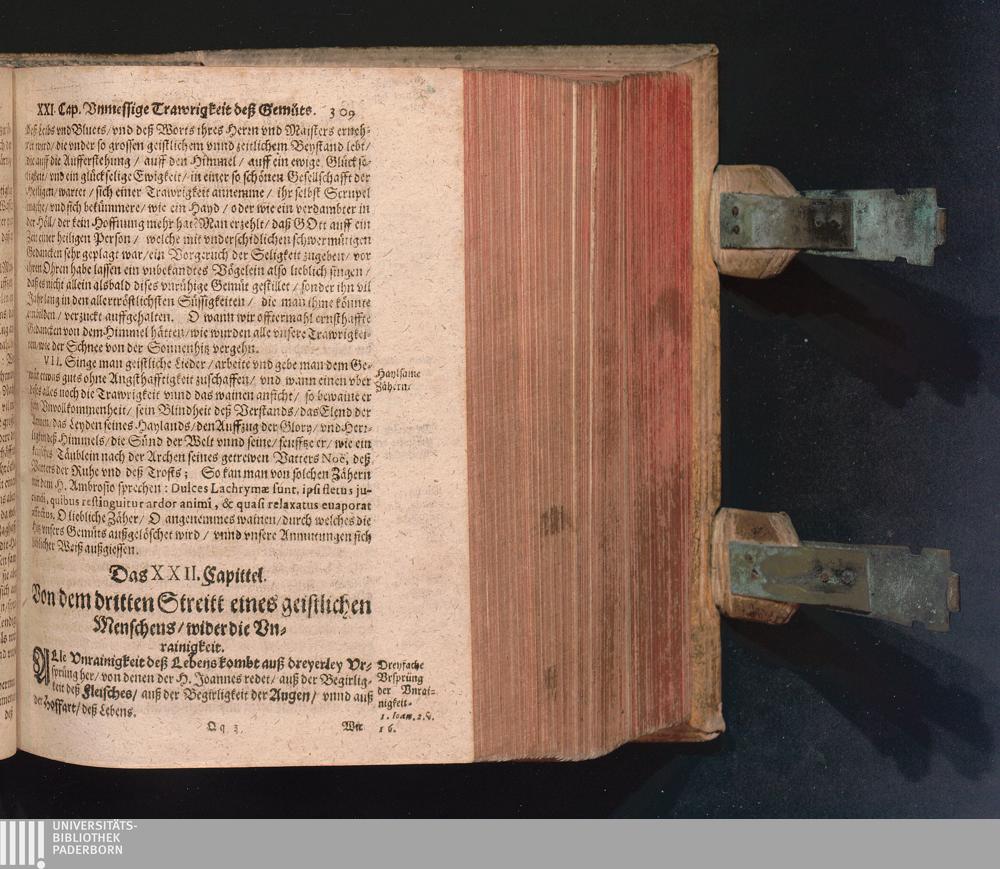 XXI. Cap. Vnmessige Trawrigkeit deß Gemüts. 309
deß Leibs vnd Bluets / vnd deß Worts ihres Herrn vnd Maisters ernehret
wird / die vnder so grossen geistlichem vnnd zeitlichem Beystand lebt /
die auff die Aufferstehung / auff den Himmel / auff ein ewige Glückseligkeit /
vnd ein glückselige Ewigkeit / in einer so schönen Gesellschafft der
Heiligen / wartet / sich einer Trawrigkeit annemme / ihr selbst Scrupel
mache / vnd sich bekümmere / wie ein Hayd / oder wie ein verdambter in
der Höll / der kein Hoffnung mehr hat? Man erzehlt / daß GOtt auff ein
Zeit einer heiligen Person / welche mit vnderschidlichen schwermütigen
Gedancken sehr geplagt war / ein Vorgeruch der Seligkeit zugeben / vor
ihren Ohren habe lassen ein vnbekandtes Vögelein also lieblich singen /
daß es nicht allein alsbald dises vnrühige Gemüt gestillet / sonder ihn vil
Jahr lang in den allertröstlichsten Süssigkeiten / die man ihme könnte
einbilden / verzuckt auffgehalten. O wann wir offtermahl ernsthaffte
Gedancken von dem Himmel hätten / wie wurden alle vnsere Trawrigkeiten /
wie der Schnee von der Sonnenhitz vergehn.
VII. Singe man geistliche Lieder / arbeite vnd gebe man dem Gemüt
etwas guts ohne Angsthafftigkeit zuschaffen / vnd wann einen vber
dises alles noch die Trawrigkeit vnnd das wainen anficht / so bewaine er
sein Vnvollkommenheit / sein Blindheit deß Verstands / das Elend der
Armen / das Leyden seines Haylands / den Auffzug der Glory / vnd Herrligkeit
deß Himmels / die Sünd der Welt vnnd seine / seufftze er / wie ein
Täublein nach der Archen seines getrewen Vatters Noë, deß
Vatters der Ruhe vnd deß Trosts; So kan man von solchen Zähern
mit dem H. Ambrosio sprechen: Dulces Lachrymæ sunt, ipsi fletus jucundi,
quibus restinguitur ardor animi, & quasi relaxatus euaporat
affectus. O liebliche Zäher / O angenemmes wainen / durch welches die
Hitz vnsers Gemüts außgelöschet wird / vnnd vnsere Anmutungen sich
lieblicher Weiß außgiessen.
Haylsame
Zähern.
Das XXII. Capittel.
Von dem dritten Streitt eines geistlichen
Menschens / wider die Vn-
rainigkeit.
ALle Vnrainigkeit deß Lebens kombt auß dreyerley Vr-
sprüng her / von denen der H. Joannes redet / auß der Begirlig-
keit deß Fleisches / auß der Begirligkeit der Augen / vnnd auß
der Hoffart / deß Lebens.
Dreyfache
Vrsprüng
der Vnrai-
nigkeit.
1. Ioan. 2. v.
16.
Qq 3 Wir
UNIVERSITÄTS-
BIBLIOTHEK
PADERBORN